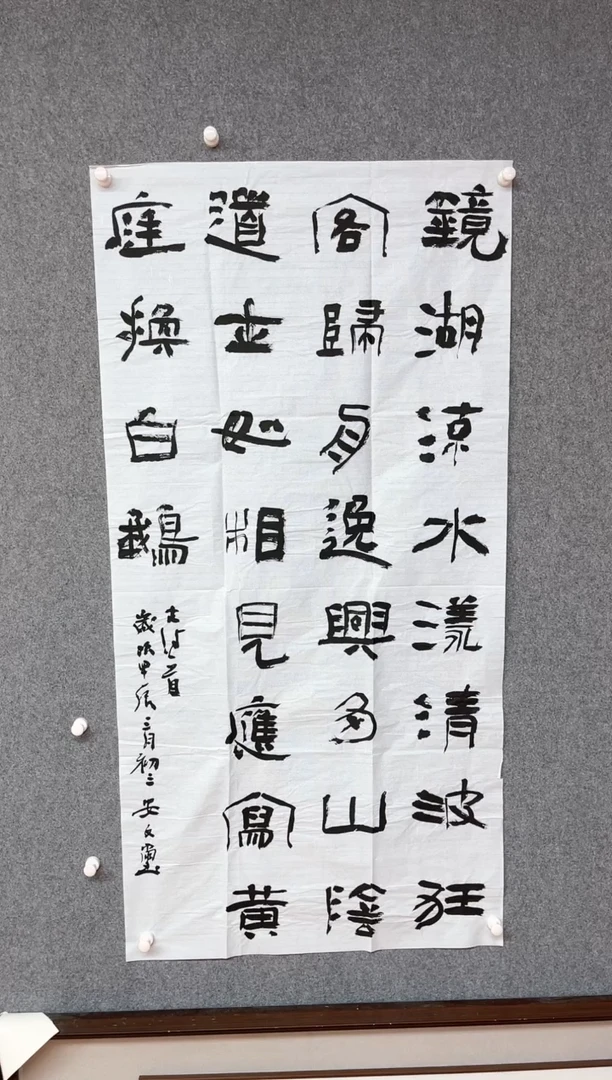 鏡湖涼水漾清波狂
客歸舟逸興多山陰
道士如相見應寫黃
庭換白鵝
古詩一首
歲次甲辰三月初三安文